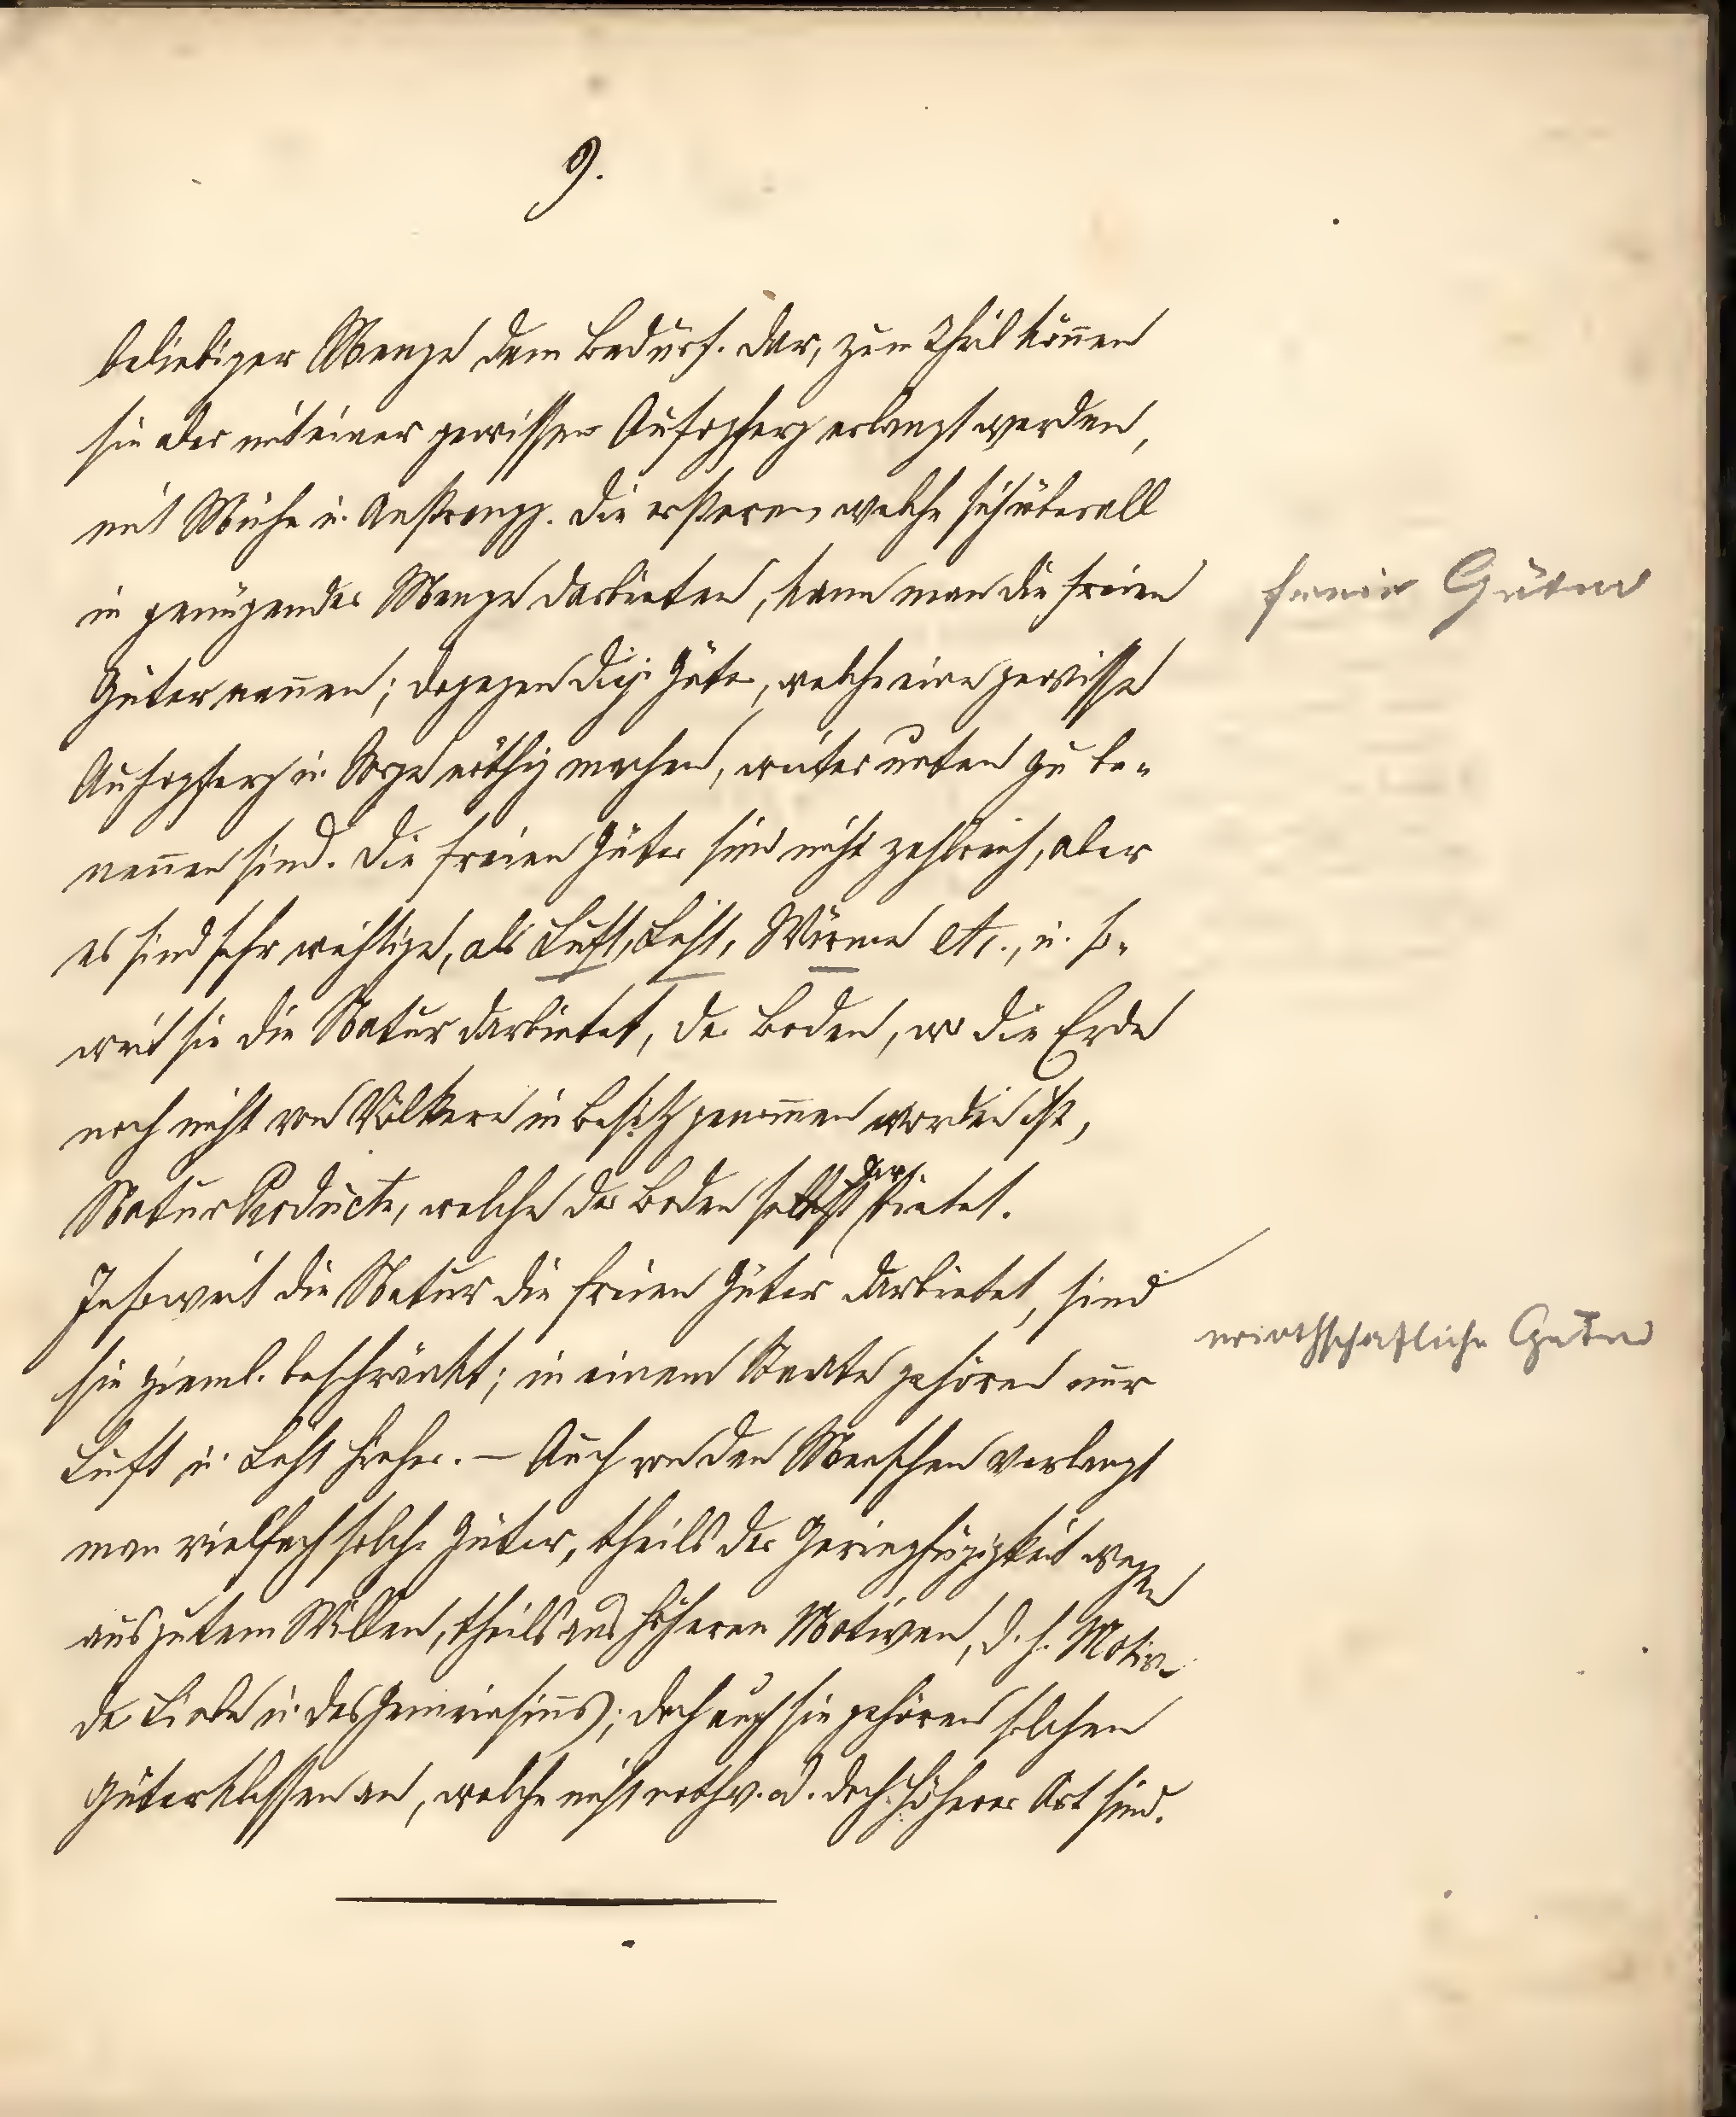 9.
beliebiger Menge dem Bedürf. dar, zum Theil können
sie aber mit einer gewissen Aufopferg erlangt werden,
mit Mühe u. Anstrengg. Die ersteren, welche sich überall
in genügender Menge darbieten, kann man die freien
freie Güter
Güter nennen; dagegen diej. Güter, welche eine gewisse
Aufopferg u. Sorge nöthig machen, weiter unten zu be-
nennen sind. Die freien Güter sind nicht zahlreich, aber
es sind sehr wichtige, als Luft, Licht, Wärme etc., u. so-
weit sie die Natur darbietet, der Boden, wo die Erde
noch nicht von Völkern in Besitz genommen worden ist,
Natur Producte, welche der Boden selbst darbietet.
Insoweit die Natur die freien Güter darbietet, sind
wirthschaftliche Güter
sie zieml. beschränkt; in einem Staate gehören nur
Luft u. Licht hieher. – Auch von den Menschen verlangt
man vielfach solche Güter, theils der Geringfügigkeit wegen
aus gutem Willen, theils aus höheren Motiven, d. h. Motive
der Liebe u. des Gemeinsinns; doch auch sie gehören solchen
Güterklassen an, welche nicht nothw. od. doch höherer Art sind.